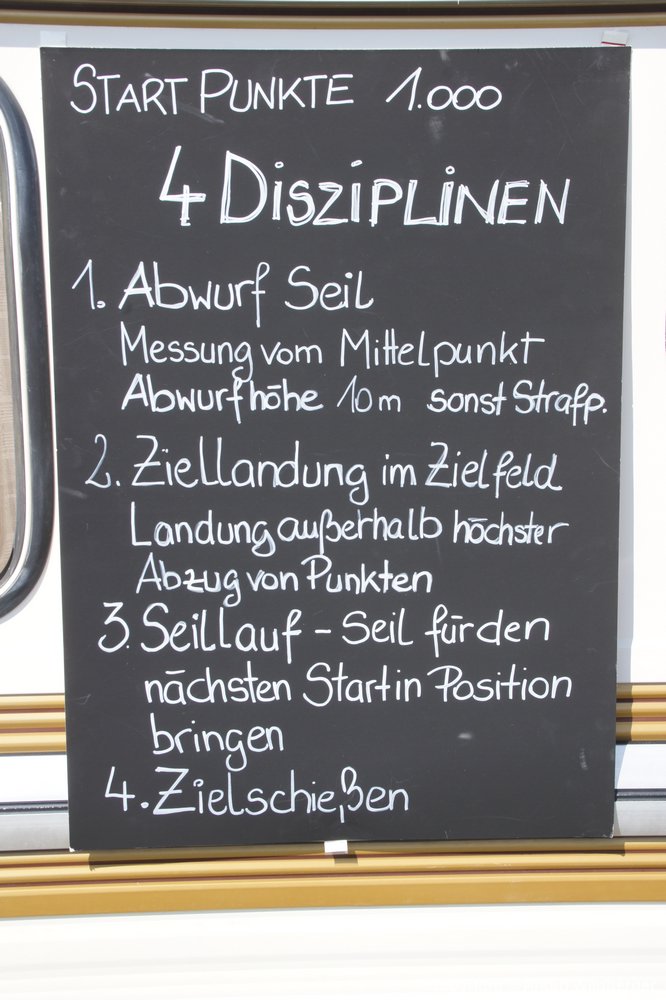 START PUNKTE 1.000
4 DISZIPLINEN
1. Abwurf Seil
Messung vom Mittelpunkt
Abwurfhöhe 10m sonst Strafp.
2. Ziellandung im Zielfeld
Landung außerhalb höchster
Abzug von Punkten
3. Seillauf - Seil für den
nächsten Start in Position
bringen
4. Zielschießen